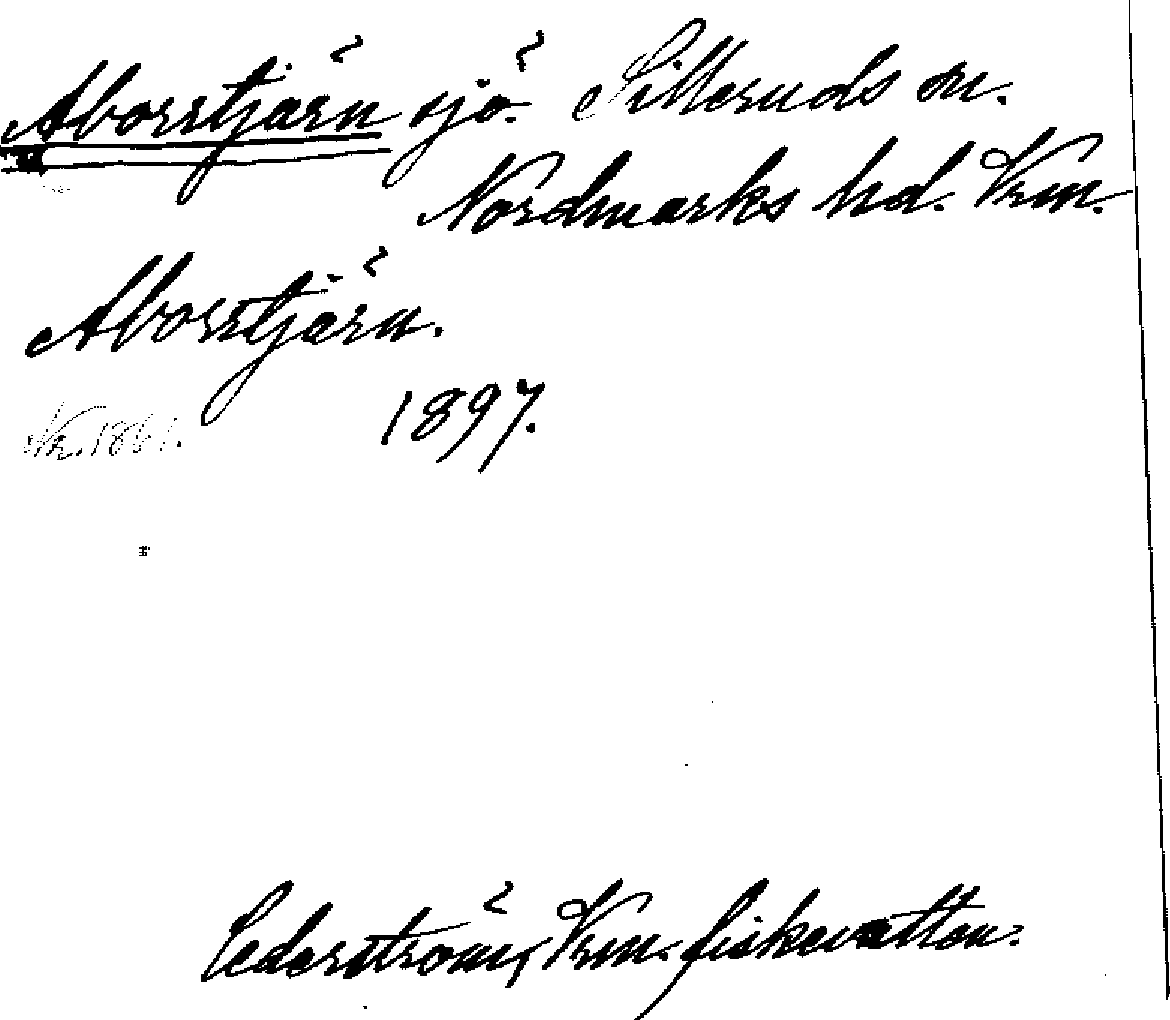 Aborrtjärn sjö. Silleruds sn.
Nordmarks hd. Vrm.
Aborrtjärn.
1897.
Cederström, Vrm. fiskevatten.